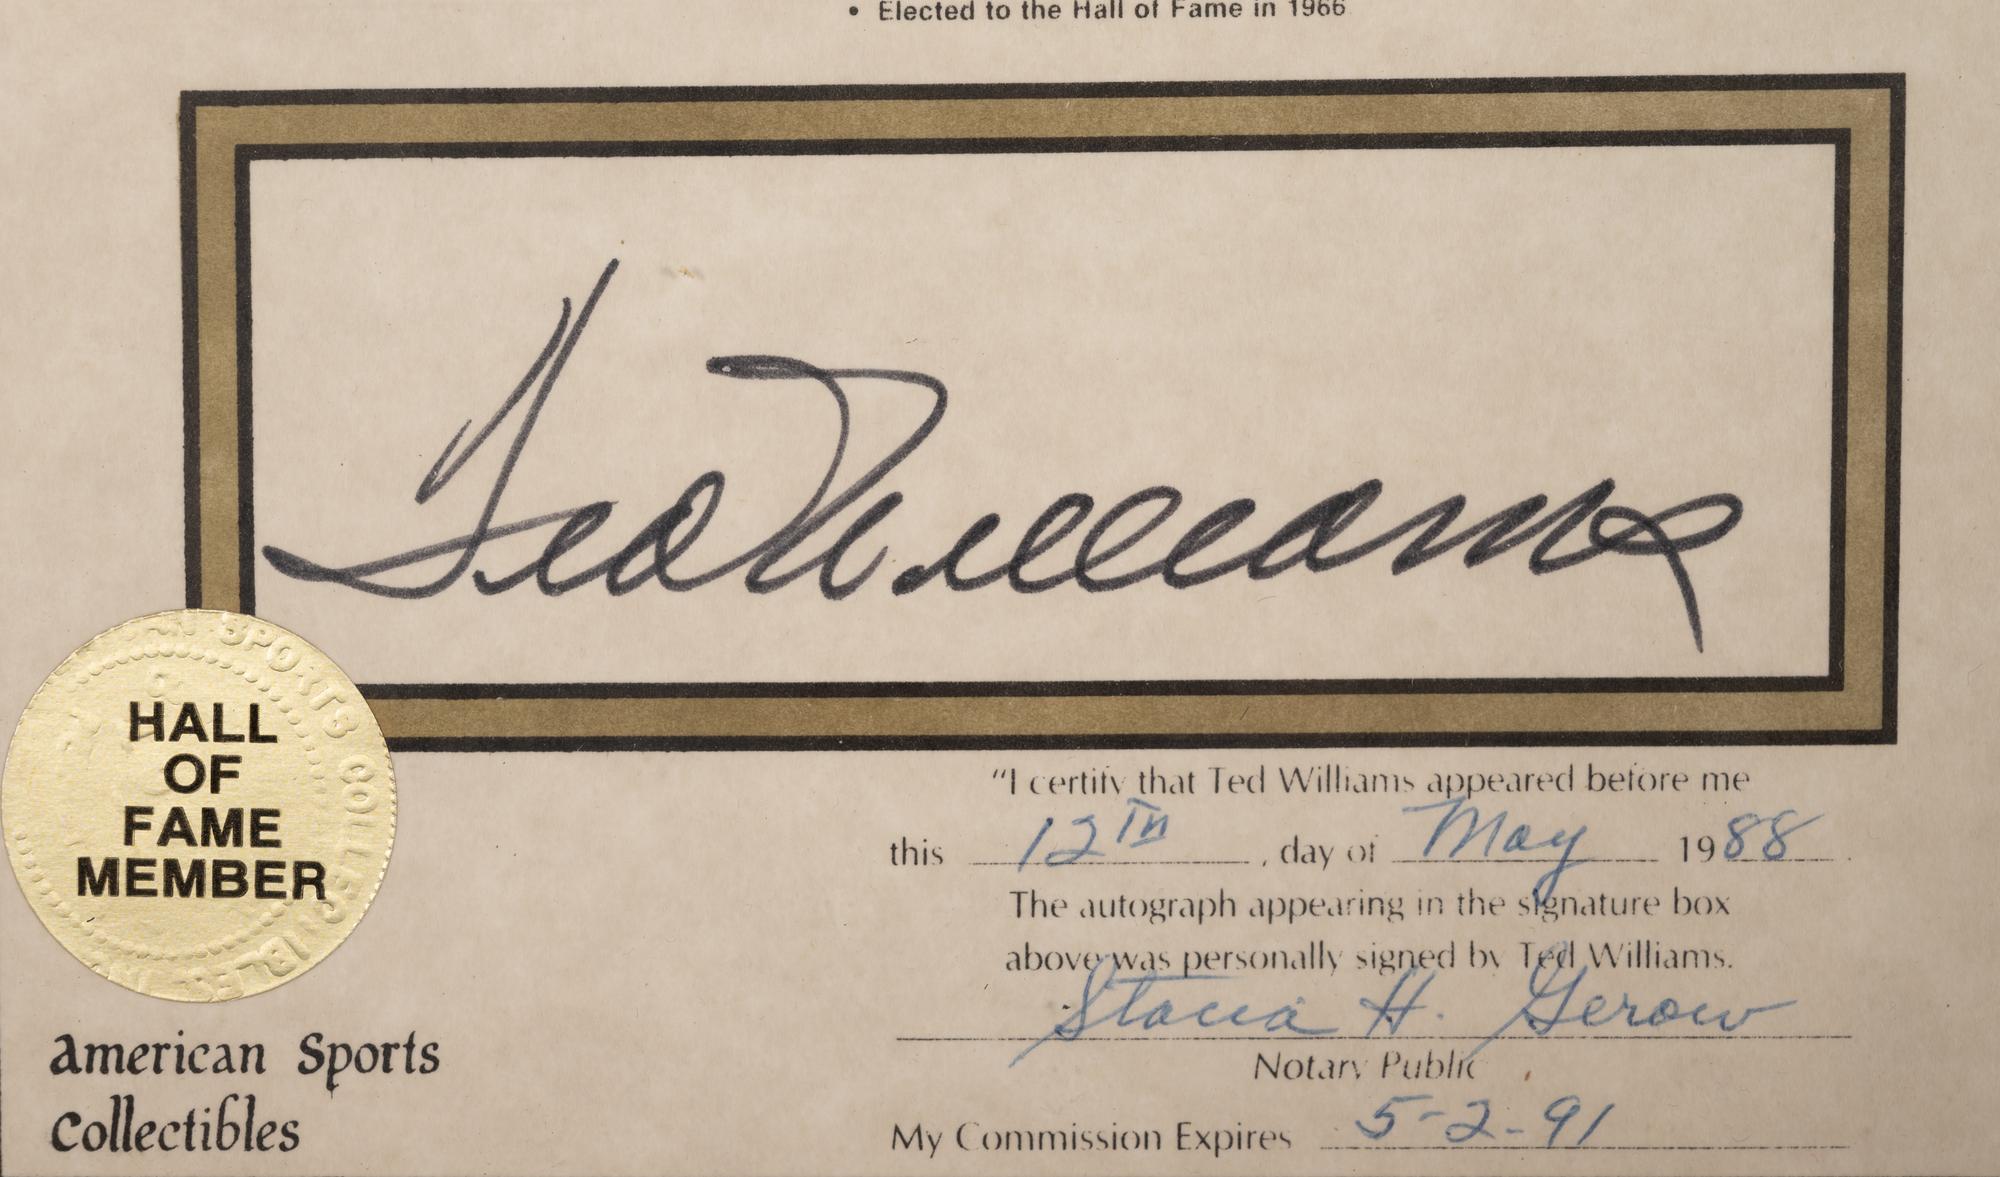 • Elected to the Hall of Fame in 1966
Ted Williams
SPORTS COLLECTIBLES
HALL
OF
FAME
MEMBER
"I certify that Ted Williams appeared before me
this 12TH, day of May 1988.
The autograph appearing in the signature box
above was personally signed by Ted Williams.
Stacia H. Gerow
Notary Public
My Commission Expires 5-2-91
American Sports
Collectibles